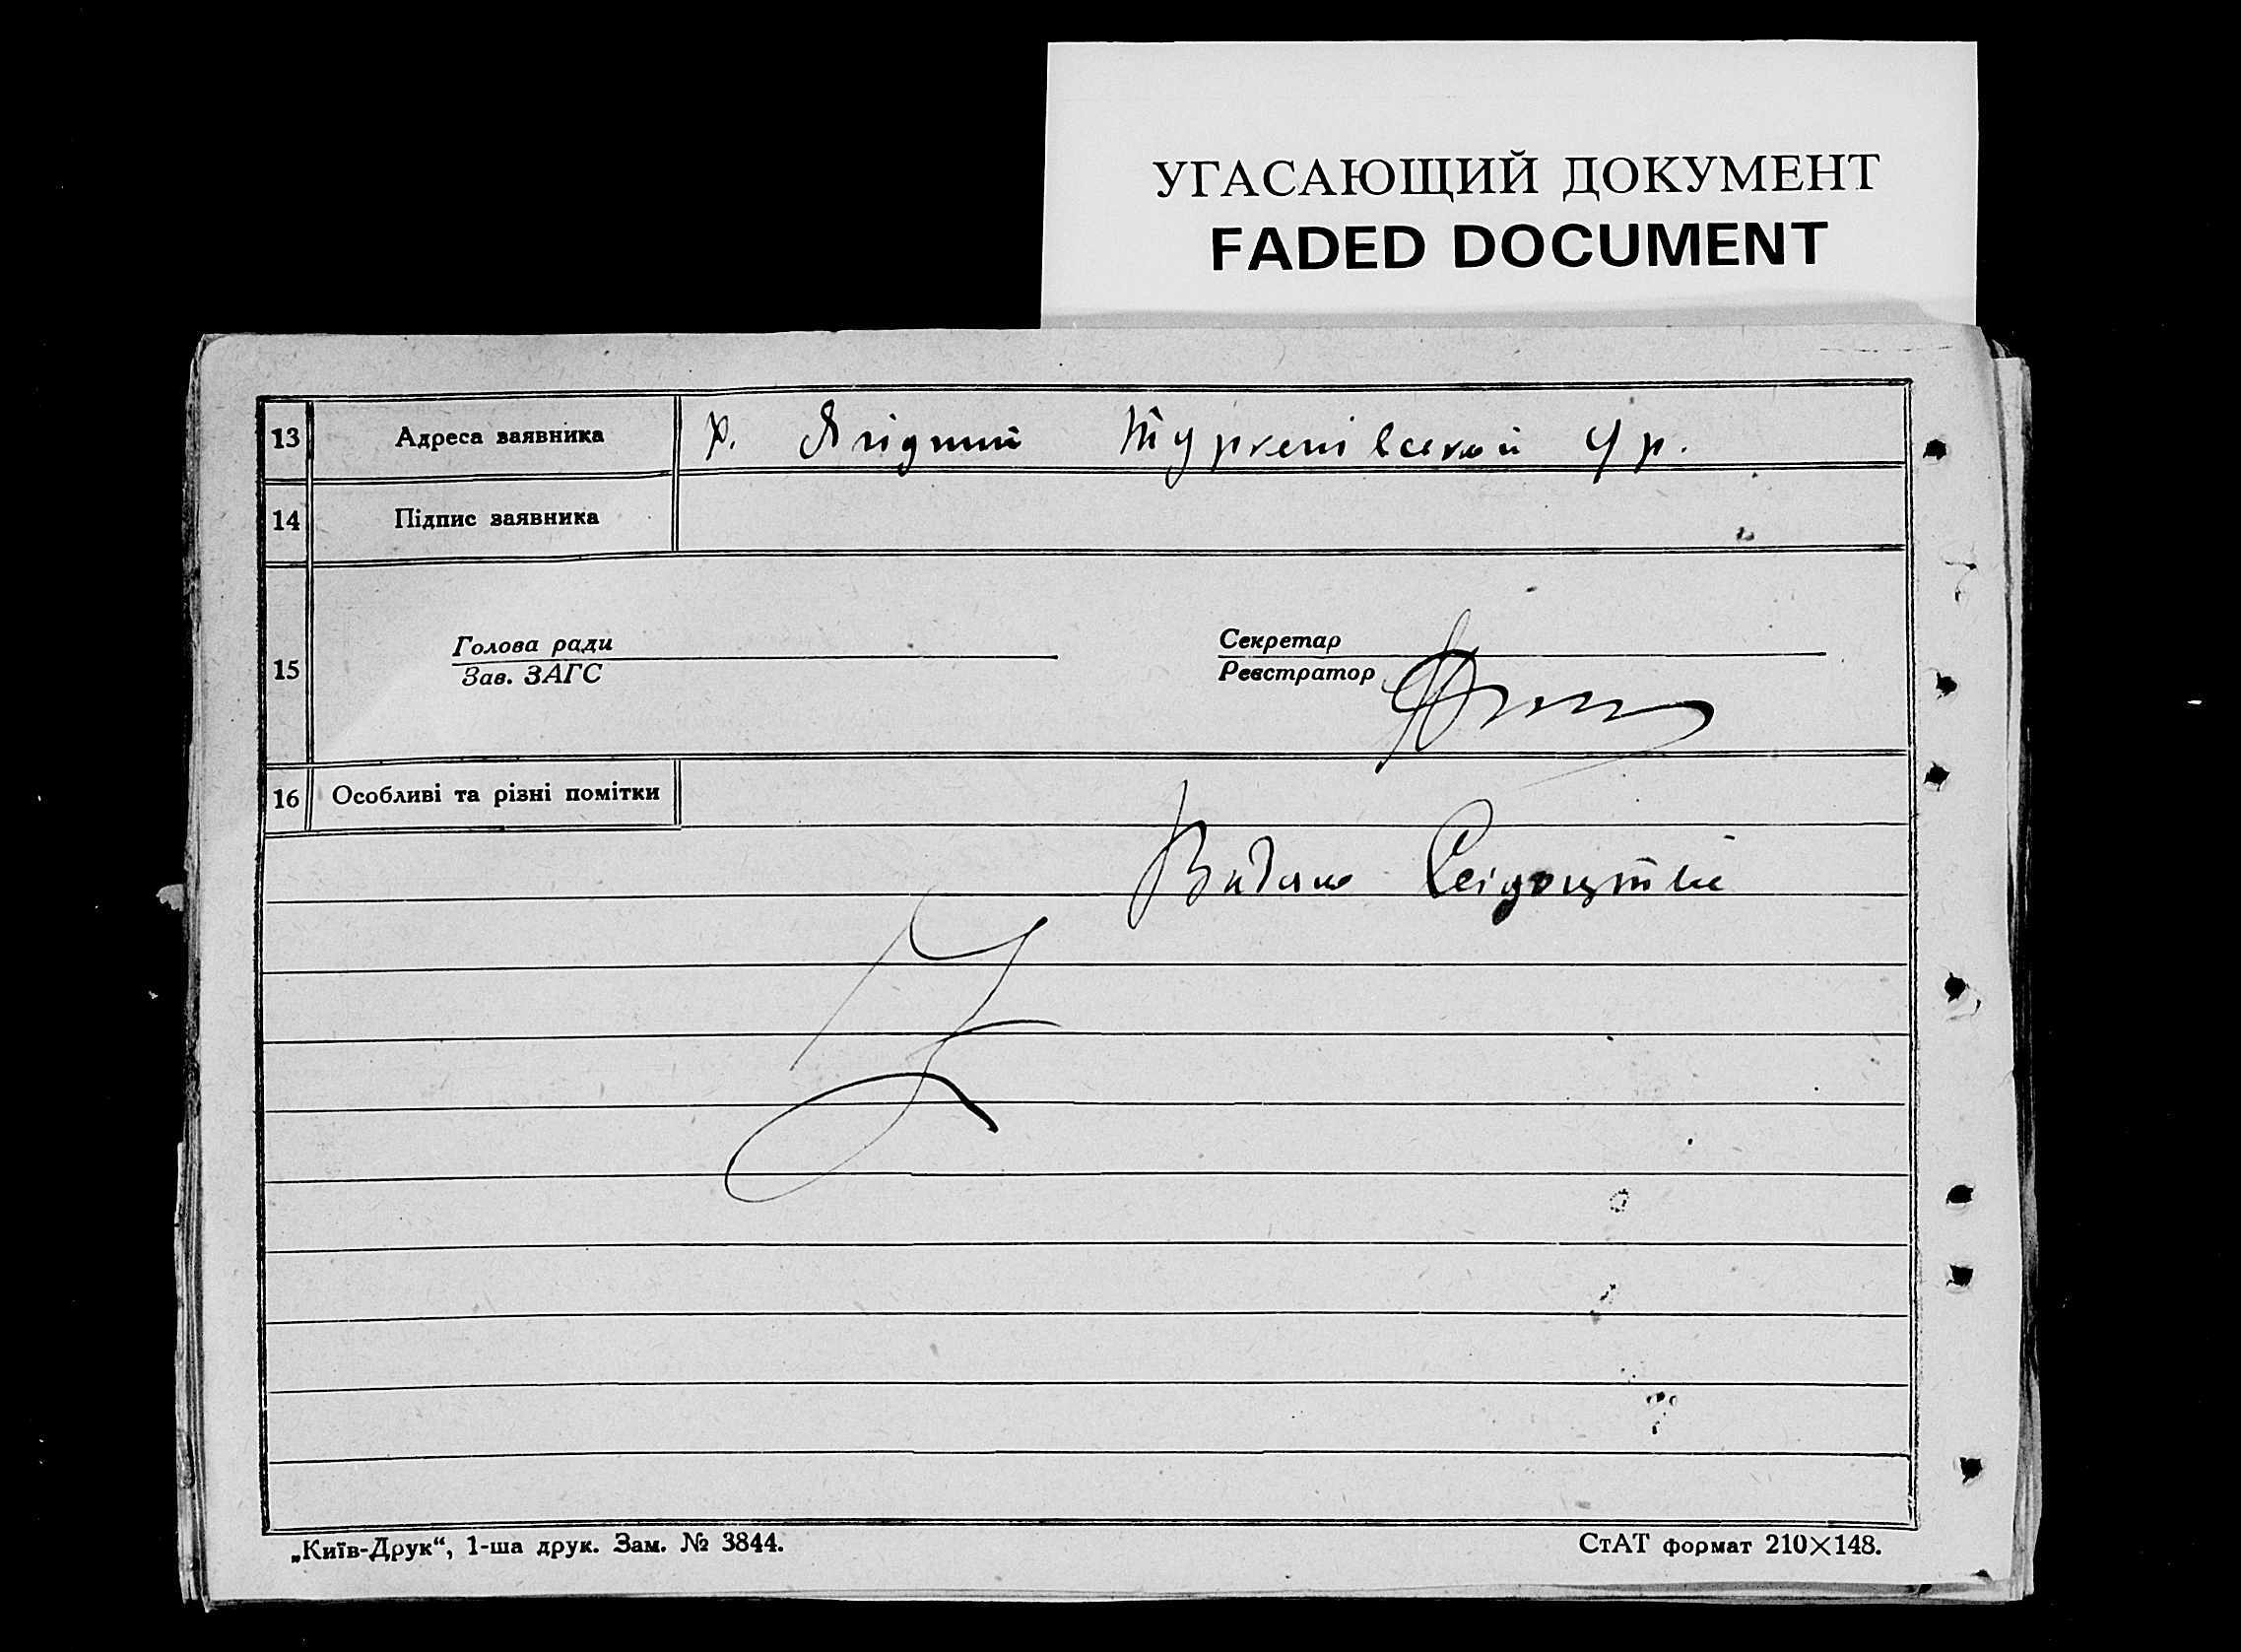 УГАСАЮЩИЙ ДОКУМЕНТ
FADED DOCUMENT
13 Адреса заявника х. Ягідний Туркенівської с/р.
14 Підпис заявника
15 Голова ради Секретар
Зав. ЗАГС Реєстратор
16 Особливі та різні помітки
Видано Свідоцтво
„Київ-Друк“, 1-ша друк. Зам. № 3844. СтАТ формат 210×148.